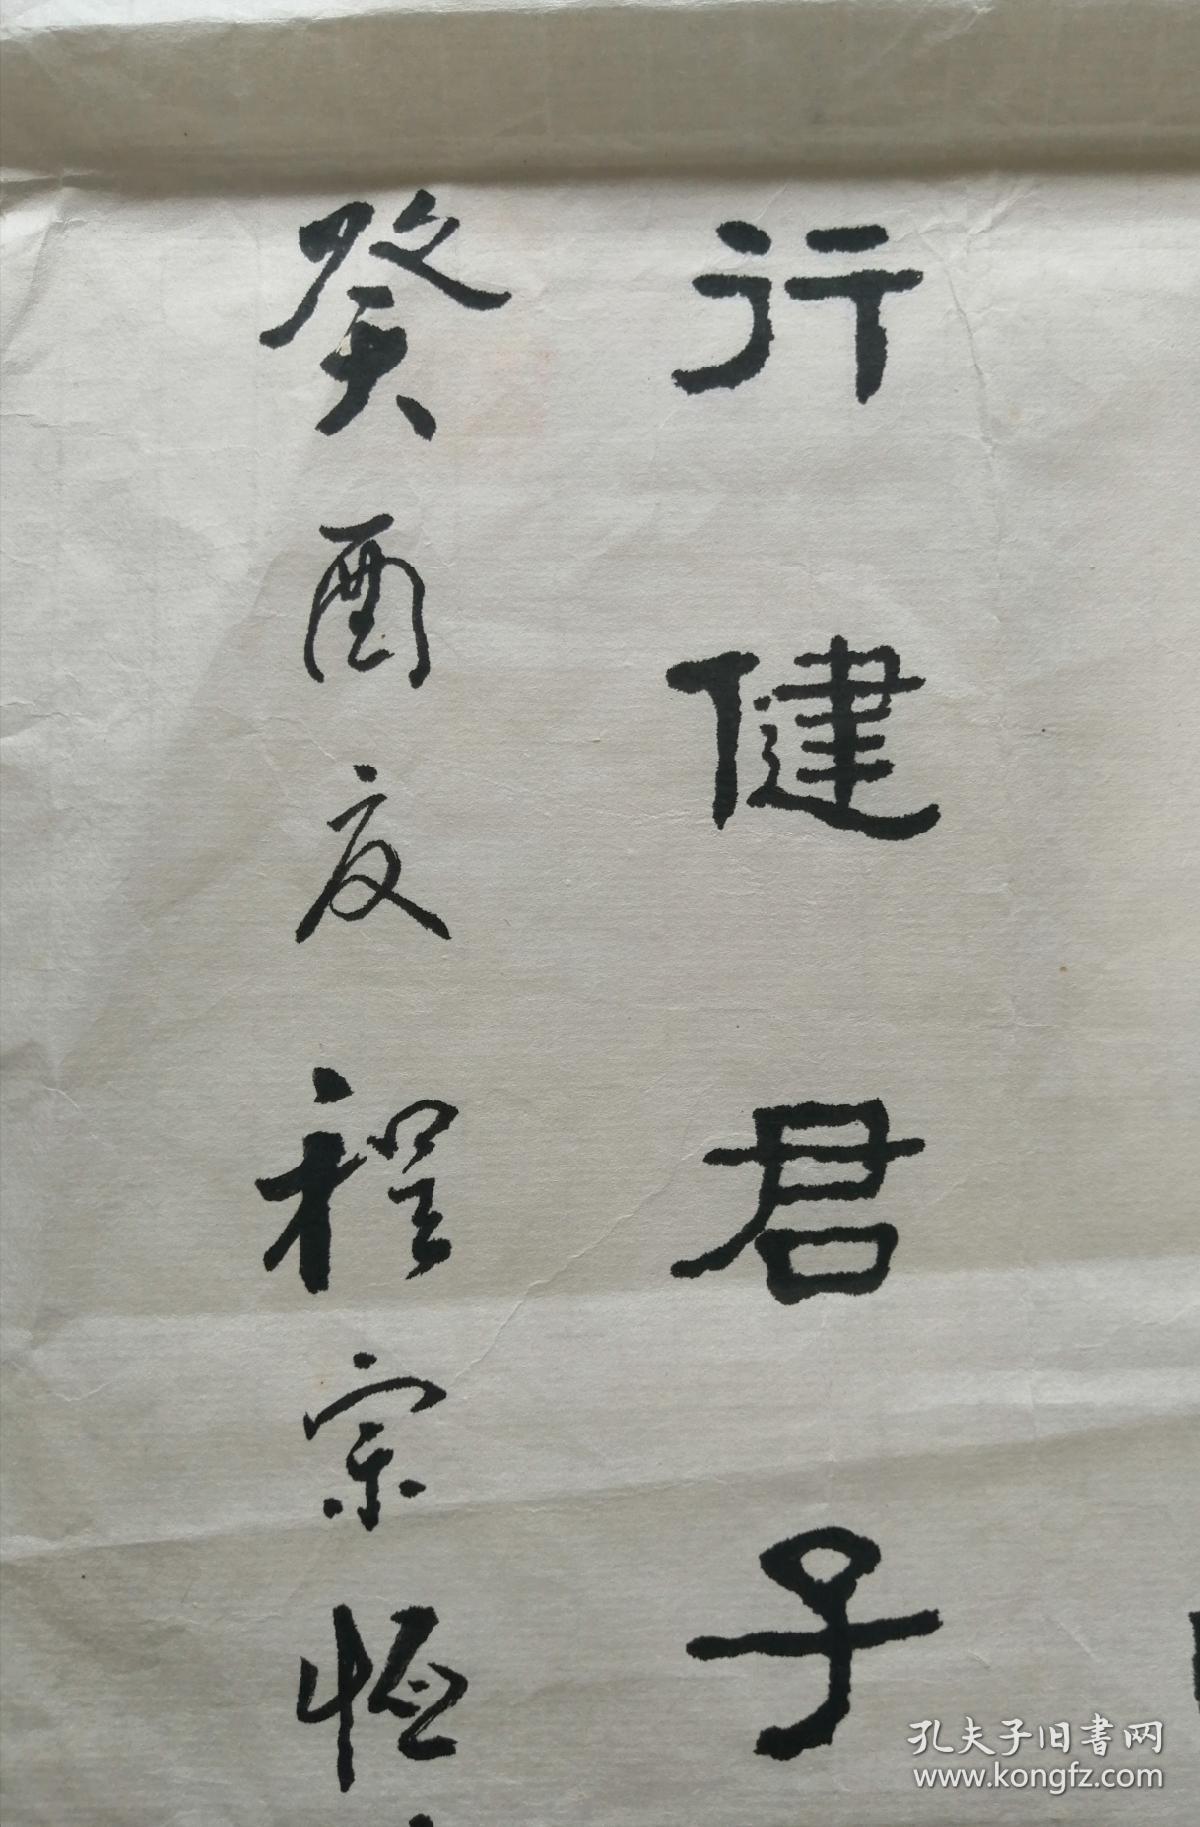 行健君子
癸酉夏程宗恒
孔夫子旧書网
www.kongfz.com